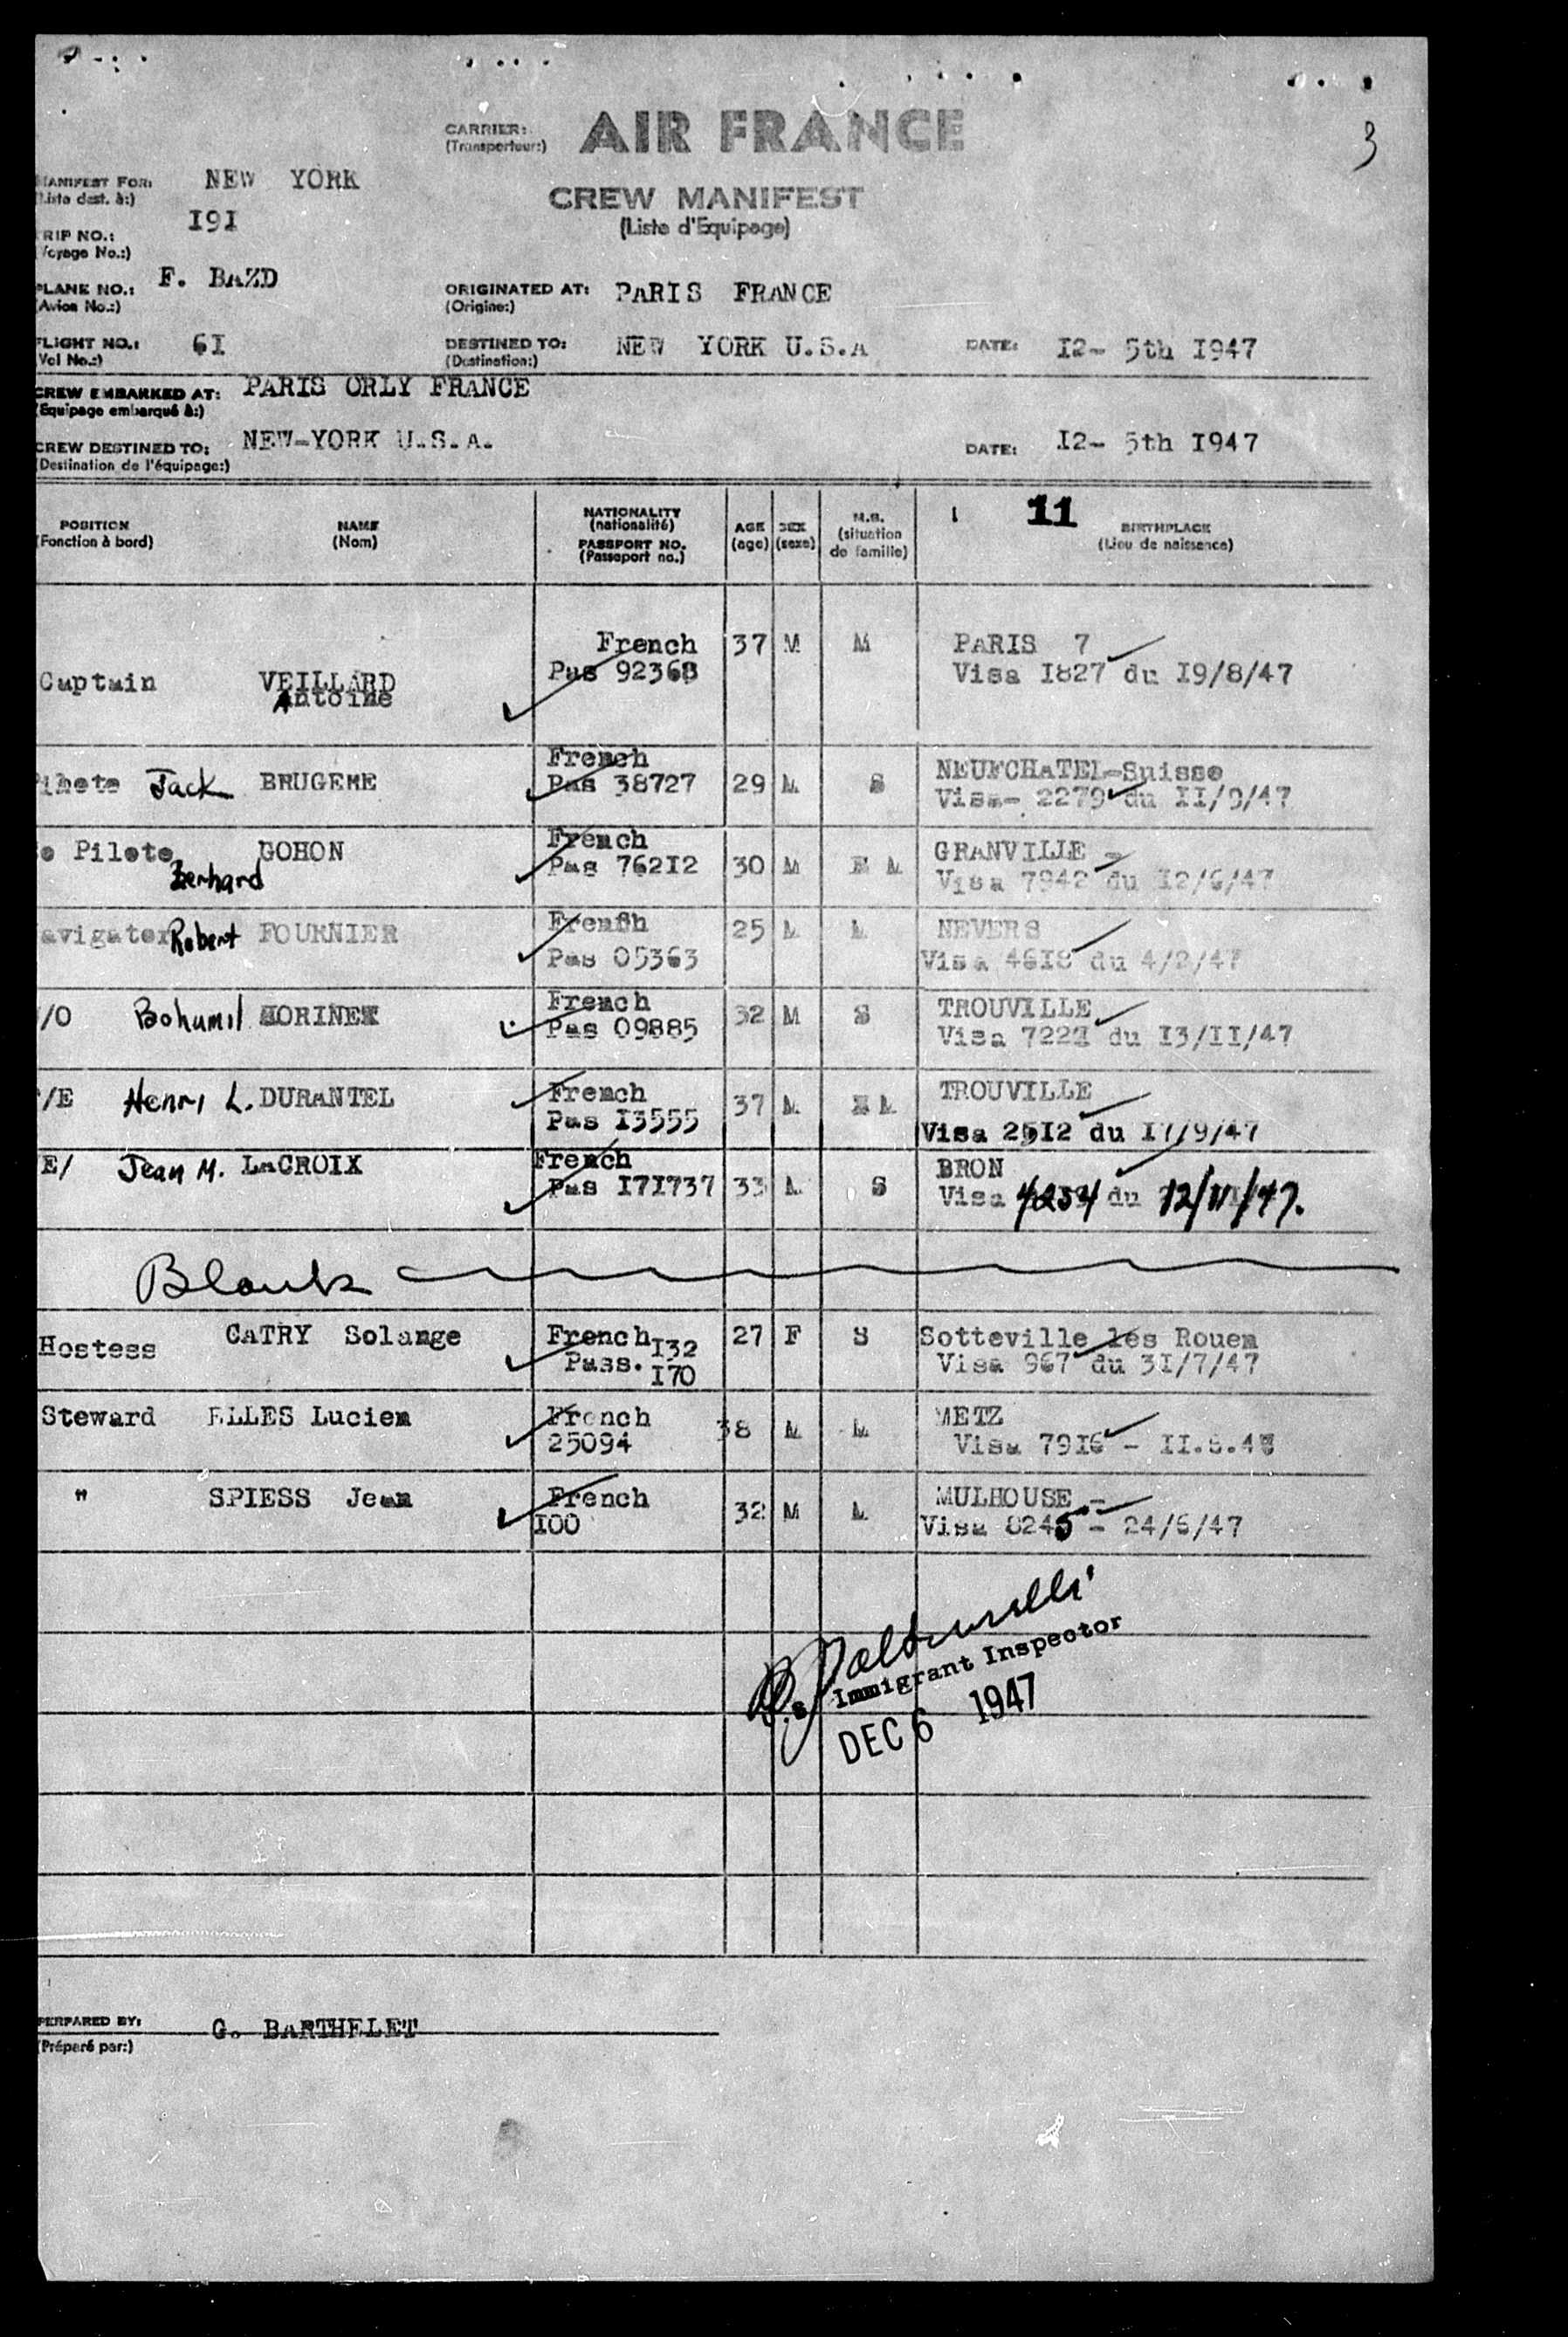 3
CARRIER: AIR FRANCE
(Transporteur:)
MANIFEST FOR: NEW YORK
(Liste dest. à:)
CREW MANIFEST
(Liste d'Equipage)
TRIP NO.: I9I
(Voyage No.:)
PLANE NO.: F. BAZD
(Avion No.:)
ORIGINATED AT: PARIS FRANCE
(Origine:)
FLIGHT NO.: 6I
(Vol No.:)
DESTINED TO: NEW YORK U.S.A
(Destination:)
DATE: I2- 5th I947
CREW EMBARKED AT: PARIS ORLY FRANCE
(Equipage embarqué à:)
CREW DESTINED TO: NEW-YORK U.S.A.
(Destination de l'équipage:)
DATE: I2- 5th I947
POSITION
(Fonction à bord)
NAME
(Nom)
NATIONALITY
(nationalité)
PASSPORT NO.
(Passeport no.)
AGE
(age)
SEX
(sexe)
M.S.
(situation
de famille)
11
BIRTHPLACE
(Lieu de naissance)
French 37 M M PARIS 7
Captain VEILLARD Pas 92368 Visa I827 du I9/8/47
Antoine
French NEUFCHATEL-Suisse
Pilote Jack BRUGEME Pas 38727 29 M S Visa- 2279 du II/9/47
e Pilote GOHON French GRANVILLE -
Berhard Pas 762I2 30 M M Visa 7942 du I2/6/47
avigator Robert FOURNIER French 25 M M NEVERS
Pas 05363 Visa 46I8 du 4/2/47
/O Bohumil HORINEK French 32 M S TROUVILLE
Pas 09885 Visa 722I du I3/II/47
/E Henri L. DURANTEL French 37 M M TROUVILLE
Pas I3555 Visa 25I2 du I7/9/47
E/ Jean M. LaCROIX French BRON
Pas I7I737 33 M S Visa 4234 du 12/11/47.
Blank
Hostess CATRY Solange French 27 F S Sotteville lés Rouen
Pass. I32 Visa 967 du 3I/7/47
I70
Steward ELLES Lucien French 38 M M METZ
25094 Visa 79I6 - II.6.47
" SPIESS Jean French 32 M M MULHOUSE -
I00 Visa 8245 - 24/6/47
Immigrant Inspector
DEC 6 1947
PERPARED BY: G. BARTHELET
(Préparé par:)